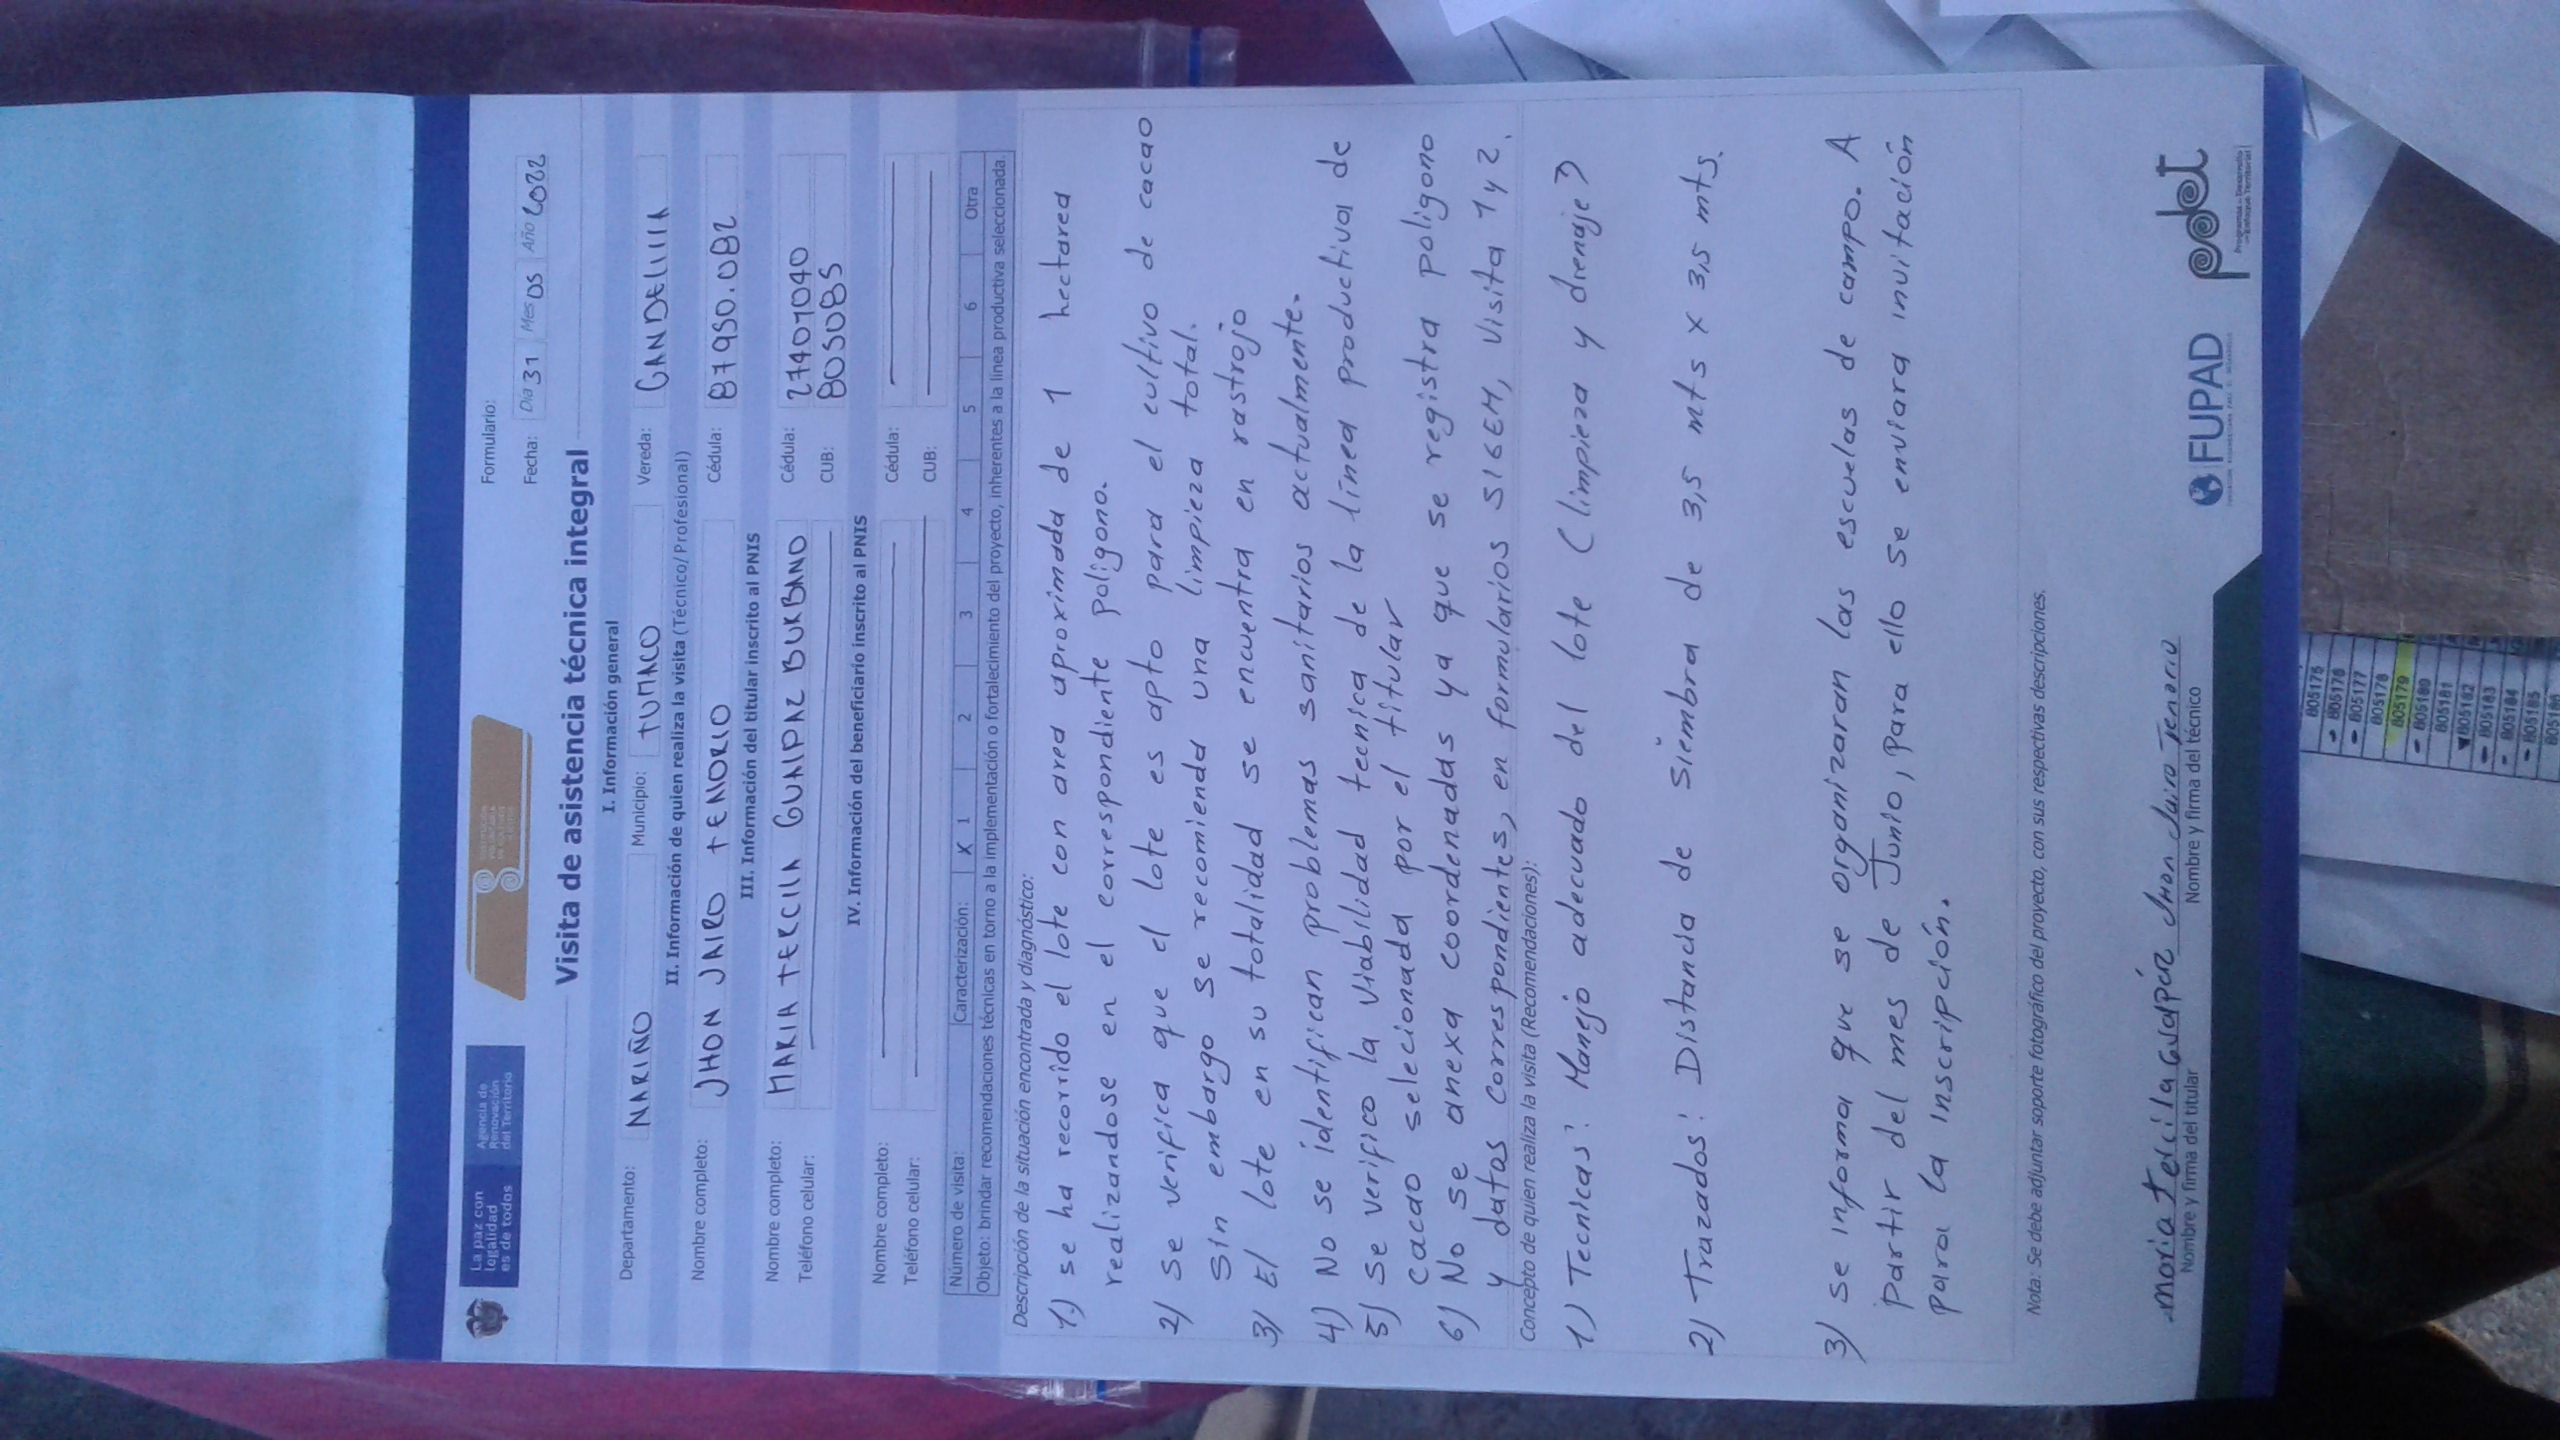 La paz con
legalidad
es de todos
Agencia de
Renovación
del Territorio
Formulario:
Fecha: Día 31 Mes 05 Año 2022
Visita de asistencia técnica integral
I. Información general
Departamento: NARIÑO Municipio: TUMACO Vereda: CANDELILLA
II. Información de quien realiza la visita (Técnico/Profesional)
Nombre completo: JHON JAIRO TENORIO Cédula: 87950.082
III. Información del titular inscrito al PNIS
Nombre completo: MARIA TERCILA GUAPAZ BURBANO Cédula: 27401040
Teléfono celular: CUB: 805085
IV. Información del beneficiario inscrito al PNIS
Nombre completo: Cédula:
Teléfono celular: CUB:
Número de visita: Caracterización: X 1 2 3 4 5 6 Otra
Objeto: brindar recomendaciones técnicas en torno a la implementación o fortalecimiento del proyecto, inherentes a la línea productiva seleccionada.
Descripción de la situación encontrada y diagnóstico:
1.) se ha recorrido el lote con area aproximada de 1 hectarea
realizandose en el correspondiente poligono.
2) Se verifica que el lote es apto para el cultivo de cacao
sin embargo se recomienda una limpieza total.
3) El lote en su totalidad se encuentra en rastrojo
4) No se identifican problemas sanitarios actualmente.
5) Se verifico la viabilidad tecnica de la línea productiva de
cacao selecionada por el titular
6) No se anexa coordenadas ya que se registra poligono
y datos correspondientes, en formularios SISEM, visita 1 y 2.
Concepto de quien realiza la visita (Recomendaciones):
1) Tecnicas: Manejo adecuado del lote (limpieza y drenaje)
2) Trazados: Distancia de siembra de 3,5 mts x 3,5 mts.
3) Se informa que se organizaran las escuelas de campo. A
partir del mes de Junio, para ello se enviara invitación
para la inscripción.
Nota: Se debe adjuntar soporte fotográfico del proyecto, con sus respectivas descripciones.
maria tercila guapaz Jhon Jairo Tenorio
Nombre y firma del titular Nombre y firma del técnico
FUPAD
pdet
Programas de Desarrollo
con Enfoque Territorial
805175
805176
805177
805178
805179
805180
805181
805182
805183
805184
805185